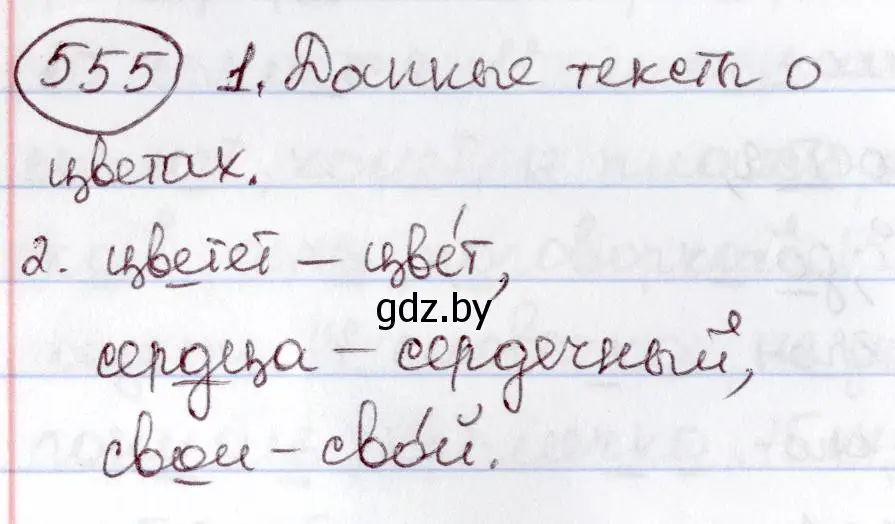 555 1. Данные тексты о
цветах.
2. цветет – цвéт,
gdz.by
сердца – сердечный,
свои – свóй.